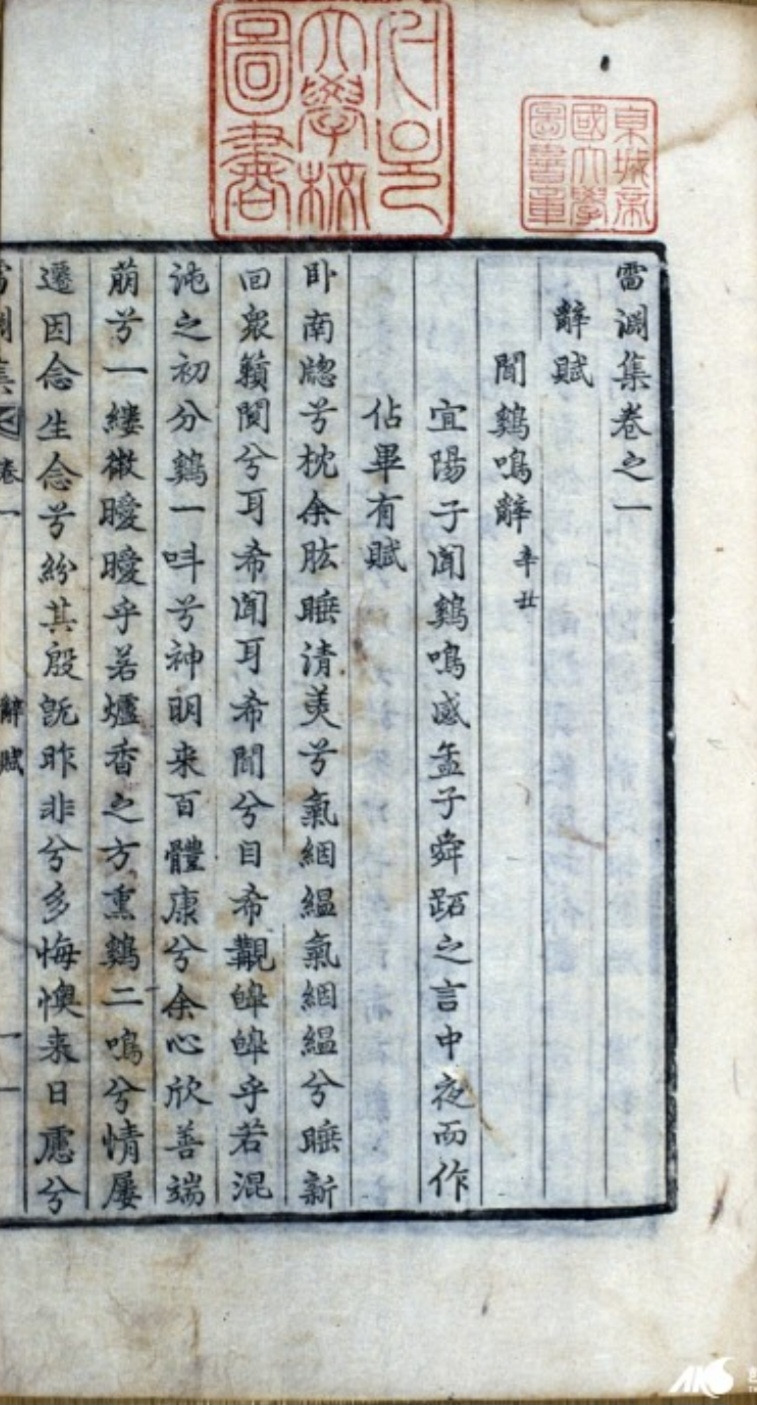 雷淵集卷之一
辭賦
聞鷄鳴辭 辛丑
宜陽子聞鷄鳴感孟子舜跖之言中夜而作
佔畢有賦
卧南牕兮枕余肱睡清美兮氣絪縕氣絪縕兮睡新
回衆籟闃兮耳希聞耳希聞兮目希觀皥皥乎若混
沌之初分鷄一呌兮神明来百體康兮余心欣善端
萠兮一縷微曖曖乎若爐香之方熏鷄二鳴兮情屢
遷因念生念兮紛其殷旣昨非兮多悔懊来日慮兮
雷淵集 卷一 辭賦 一
東城帝國大學圖書章
大學校圖書
AKS